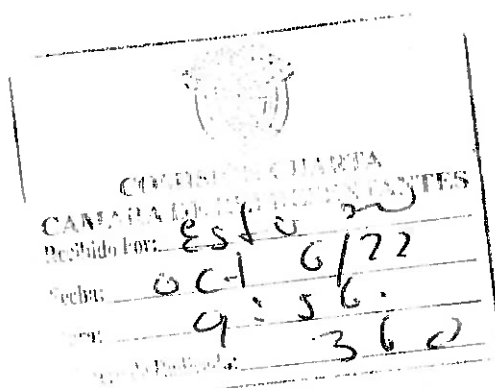 COMISIÓN CUARTA
CAMARA DE REPRESENTANTES
Recibido Por:
Fecha: Oct 6/22
Hora: 9:56.
Radicado: 360